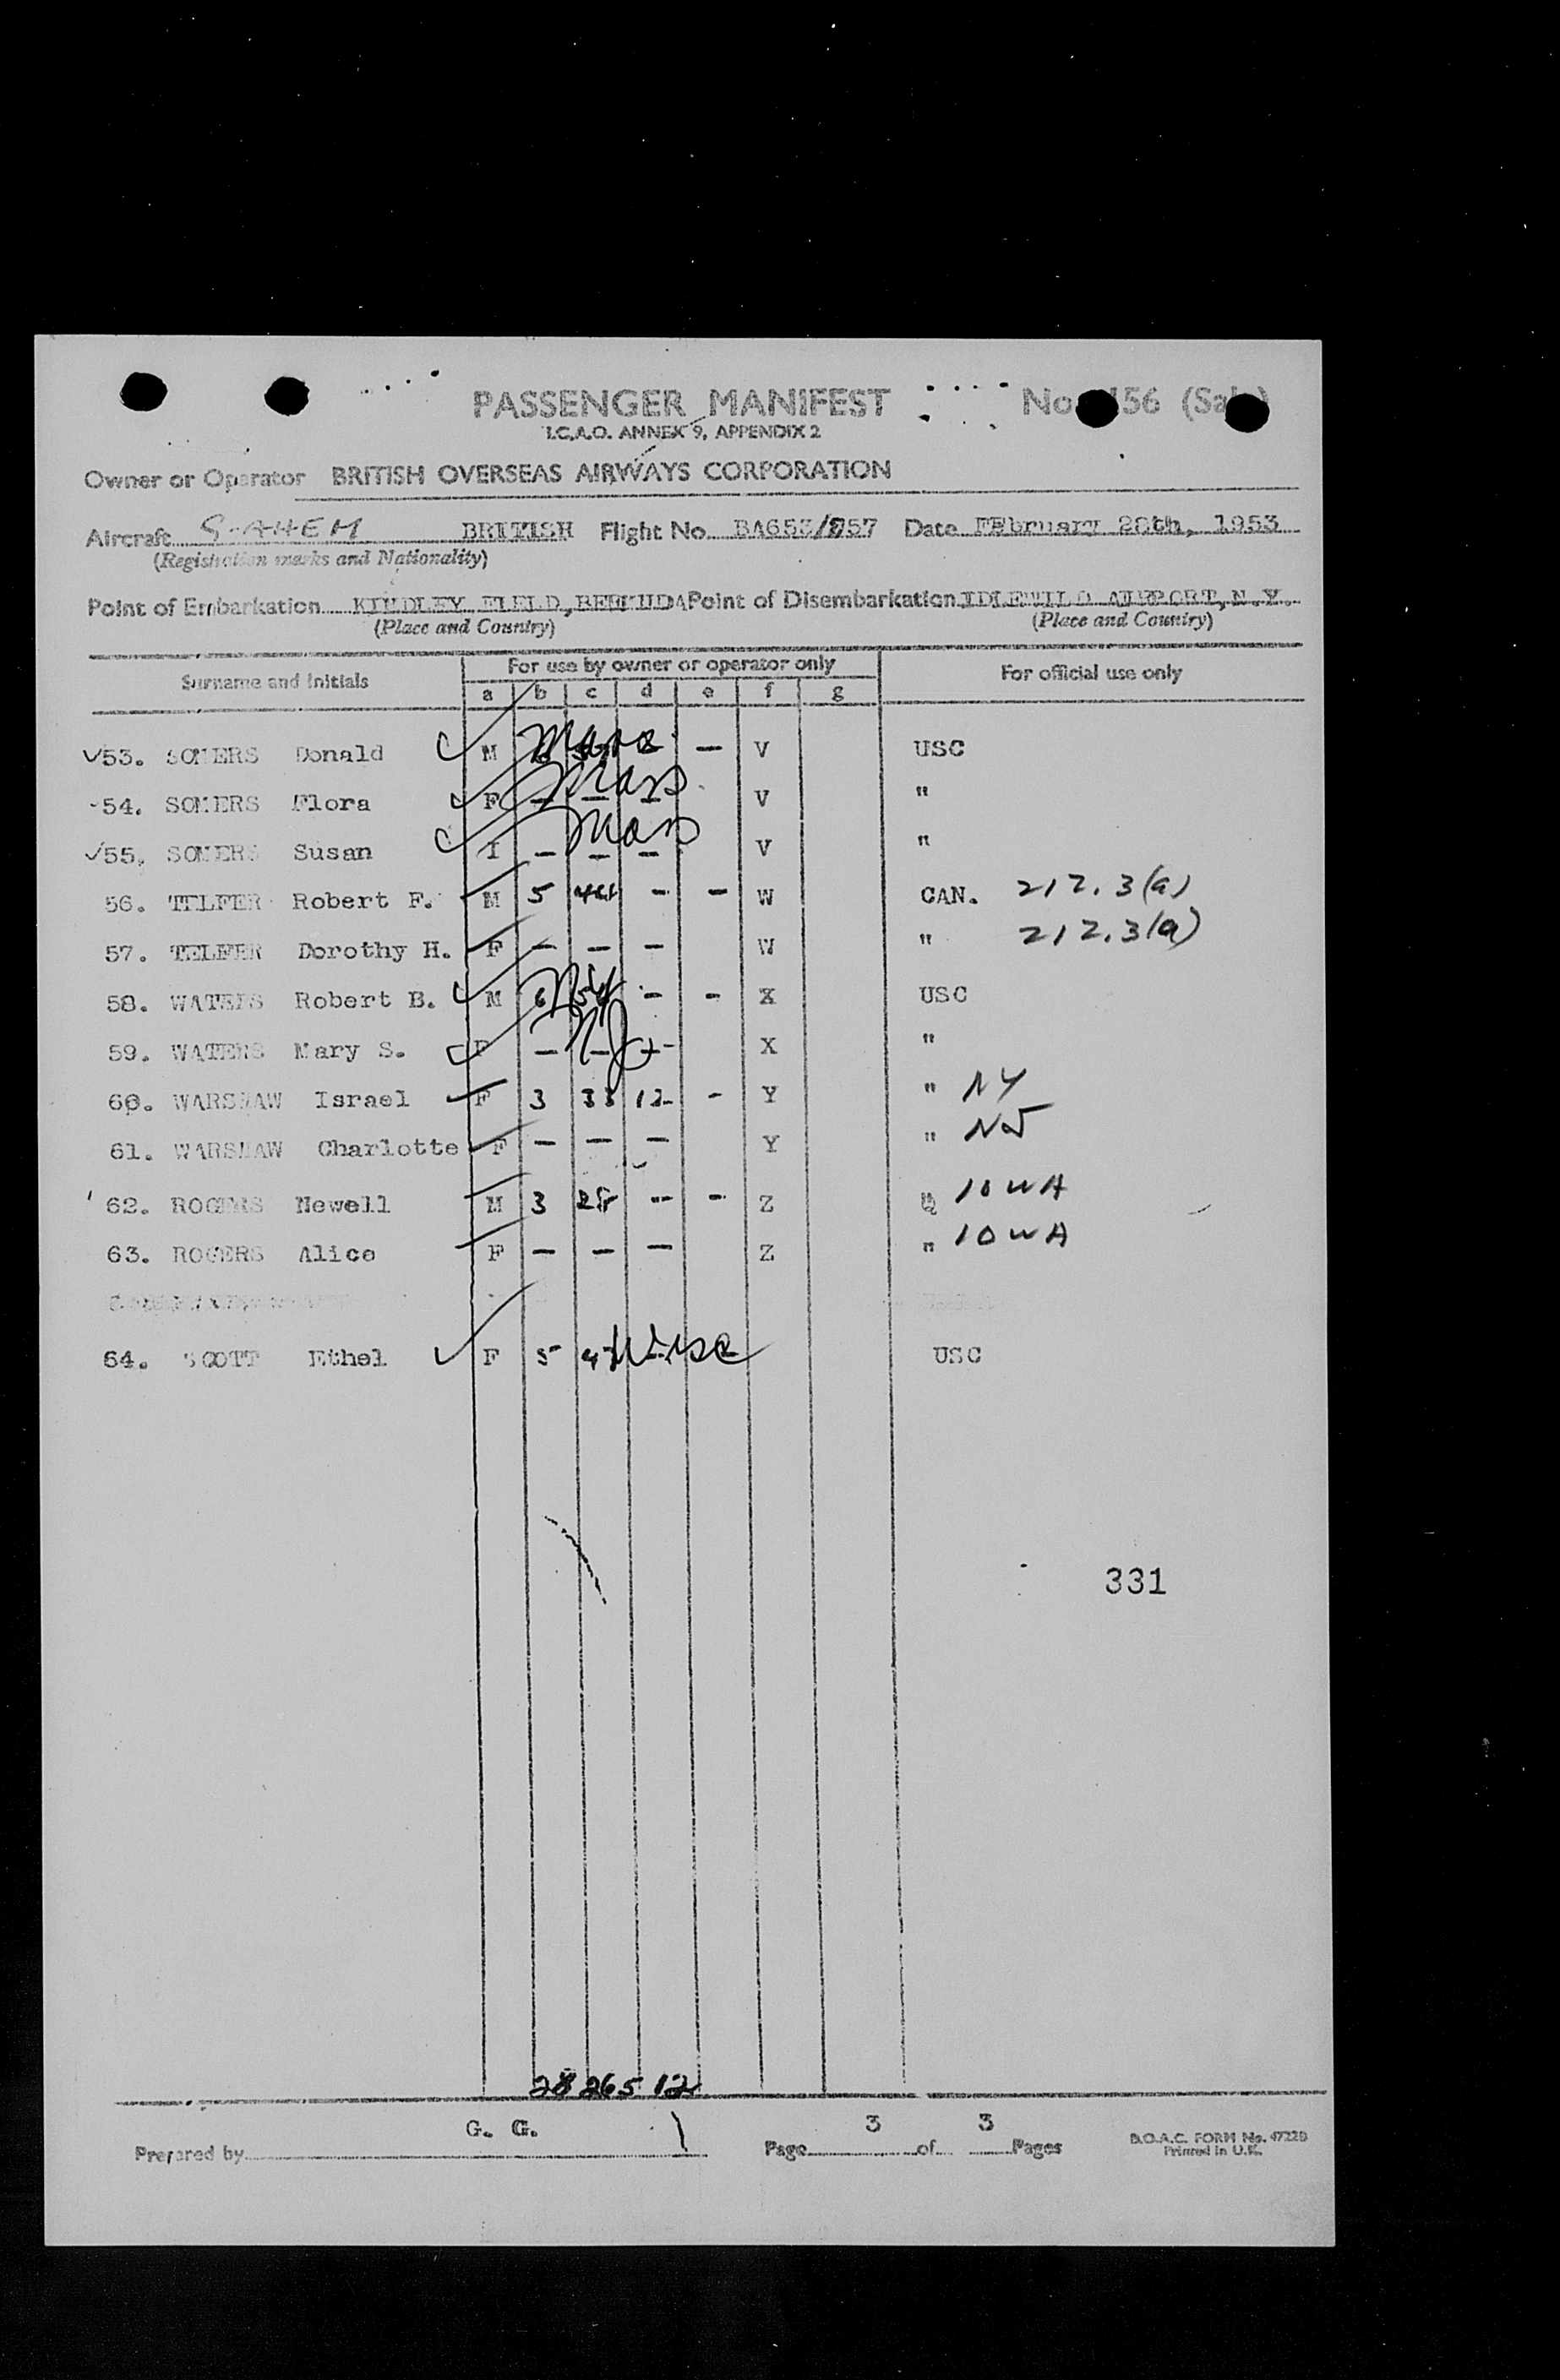 PASSENGER MANIFEST
I.C.A.O. ANNEX 9, APPENDIX 2
Owner or Operator BRITISH OVERSEAS AIRWAYS CORPORATION
Aircraft G-AHEM BRITISH Flight No. Date FEbruary 28th, 1953
(Registration marks and Nationality)
Point of Embarkation KINDLEY FIELD, BERMUDA Point of Disembarkation IDLEWILD AIRPORT, N.Y.
(Place and Country) (Place and Country)
Surname and Initials For use by owner or operator only For official use only
a b c d e f g
53. SOMERS Donald M Mass - V USC
54. SOMERS Flora F - - - Mass V "
55. SOMERS Susan I - - - Mass V "
56. TELFER Robert F. M 5 44 - - W CAN. 212.3(a)
57. TELFER Dorothy H. F - - - W " 212.3(a)
58. WATERS Robert B. M 6 - - X USC
59. WATERS Mary S. F - - - NJ X "
60. WARSHAW Israel F 3 33 12 - Y " NY
61. WARSHAW Charlotte F - - - Y " NJ
62. ROGERS Newell M 3 28 - - Z IOWA
63. ROGERS Alice F - - - Z " IOWA
64. SCOTT Ethel F 5 USC
331
28 265 12
G. G.
Prepared by Page 3 of 3 Pages
B.O.A.C. FORM No. 4722B
Printed in U.K.